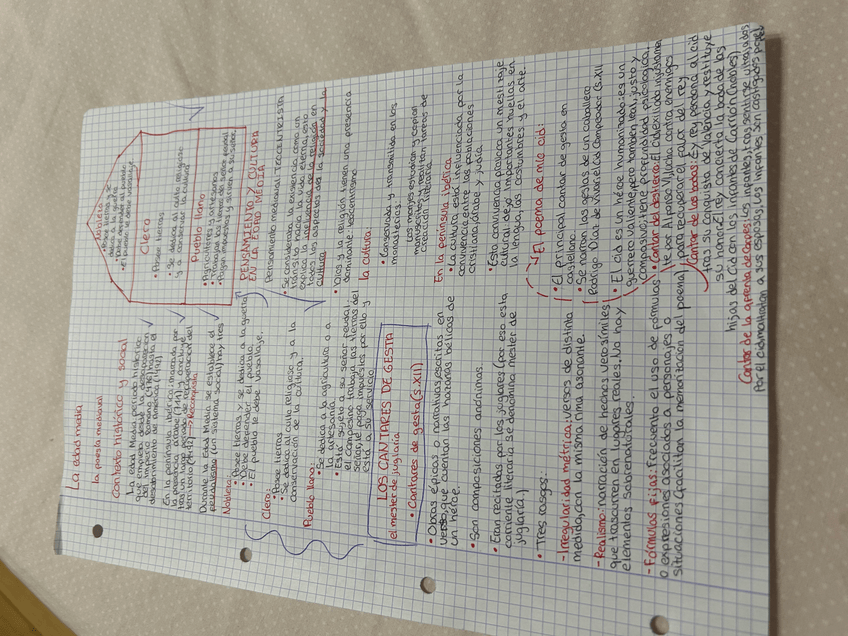 La edad media
la poesía medieval
contexto histórico y social
La edad Media periodo histórico
que empieza desde la desmembración
del imperio romano (476) hasta el
descubrimiento de América (1492)
En la península ibérica marcada por
la presencia árabe (711) y incluye
un largo periodo de recuperación del
territorio (1492) → Reconquista
Durante la Edad Media se establece el
feudalismo (un sistema social) hay tres
Nobleza:
• Posee tierras y se dedica a la guerra
• Debe defender al pueblo
• El pueblo le debe vasallaje.
Clero:
• Posee tierras
• Se dedica al culto religioso y a la
conservación de la cultura.
Pueblo llano:
• Se dedica a la agricultura o a
la artesanía
• Está sujeto a su señor feudal:
el campesino trabaja las tierras del
señor, le paga impuestos por ello y
está a su servicio
LOS CANTARES DE GESTA
el mester de juglaría
• Cantares de gesta (s.XII)
• Obras épicas o narrativas, escritas en
verso, que cuentan las hazañas bélicas de
un héroe.
• Son composiciones anónimas.
• Eran recitadas por los juglares (por eso esta
corriente literaria se denomina mester de
juglaría)
• Tres rasgos:
- Irregularidad métrica: versos de distinta
medida, con la misma rima asonante.
- Realismo: narración de hechos verosímiles
que trascurren en lugares reales. No hay
elementos sobrenaturales.
- Fórmulas fijas: Frecuente el uso de fórmulas
o expresiones asociadas a personajes o
situaciones (facilitan la memorización del poema)
Nobleza
• Posee tierras y se
dedica a la guerra
• Debe defender al pueblo
• El pueblo le debe vasallaje
Clero
• Posee tierras
• Se dedica al culto religioso
y a conservar la cultura
Pueblo llano
• Agricultores y artesanos
• Trabaja las tierras del señor feudal
• Pagan impuestos y sirven a su señor.
PENSAMIENTO Y CULTURA
EN LA EDAD MEDIA
Pensamiento medieval: TEOCENTRISTA
• Se consideraba la existencia como un
tránsito hacia la vida eterna, esto
explica la influencia de la religión en
todos los aspectos de la sociedad y la
cultura
• Dios y la religión tienen una presencia
dominante: teocentrismo
la cultura
• Conservada y transmitida en los
monasterios.
Los monjes estudian y copian
manuscritos y realizan tareas de
creación literaria
En la península ibérica
• La cultura está influenciada por la
convivencia entre las poblaciones
cristiana, árabe y judía
• Esta convivencia provoca un mestizaje
cultural dejó importantes huellas en
la lengua, las costumbres y el arte.
El poema de mio cid:
• El principal cantar de gesta en
castellano
• Se narran las gestas de un caballero
Rodrigo Díaz de Vivar, el Cid Campeador (s.XI)
• El cid es un héroe humanizado: es un
guerrero valiente, pero también leal, justo y
compasivo; tiene profundidad psicológica.
• Cantar del destierro: El cid exiliado injustamen
te por Alfonso VI, lucha contra enemigos
para recuperar el favor del rey
• Cantar de las bodas: El rey perdona al cid
tras su conquista de Valencia y restituye
su honra. El rey concierta la boda de las
hijas del Cid con los infantes de Carrión (nobles)
Cantar de la afrenta de Corpes: Los infantes, tras sentirse ultrajados
por el cid, maltratan a sus esposas, los infantes son castigados